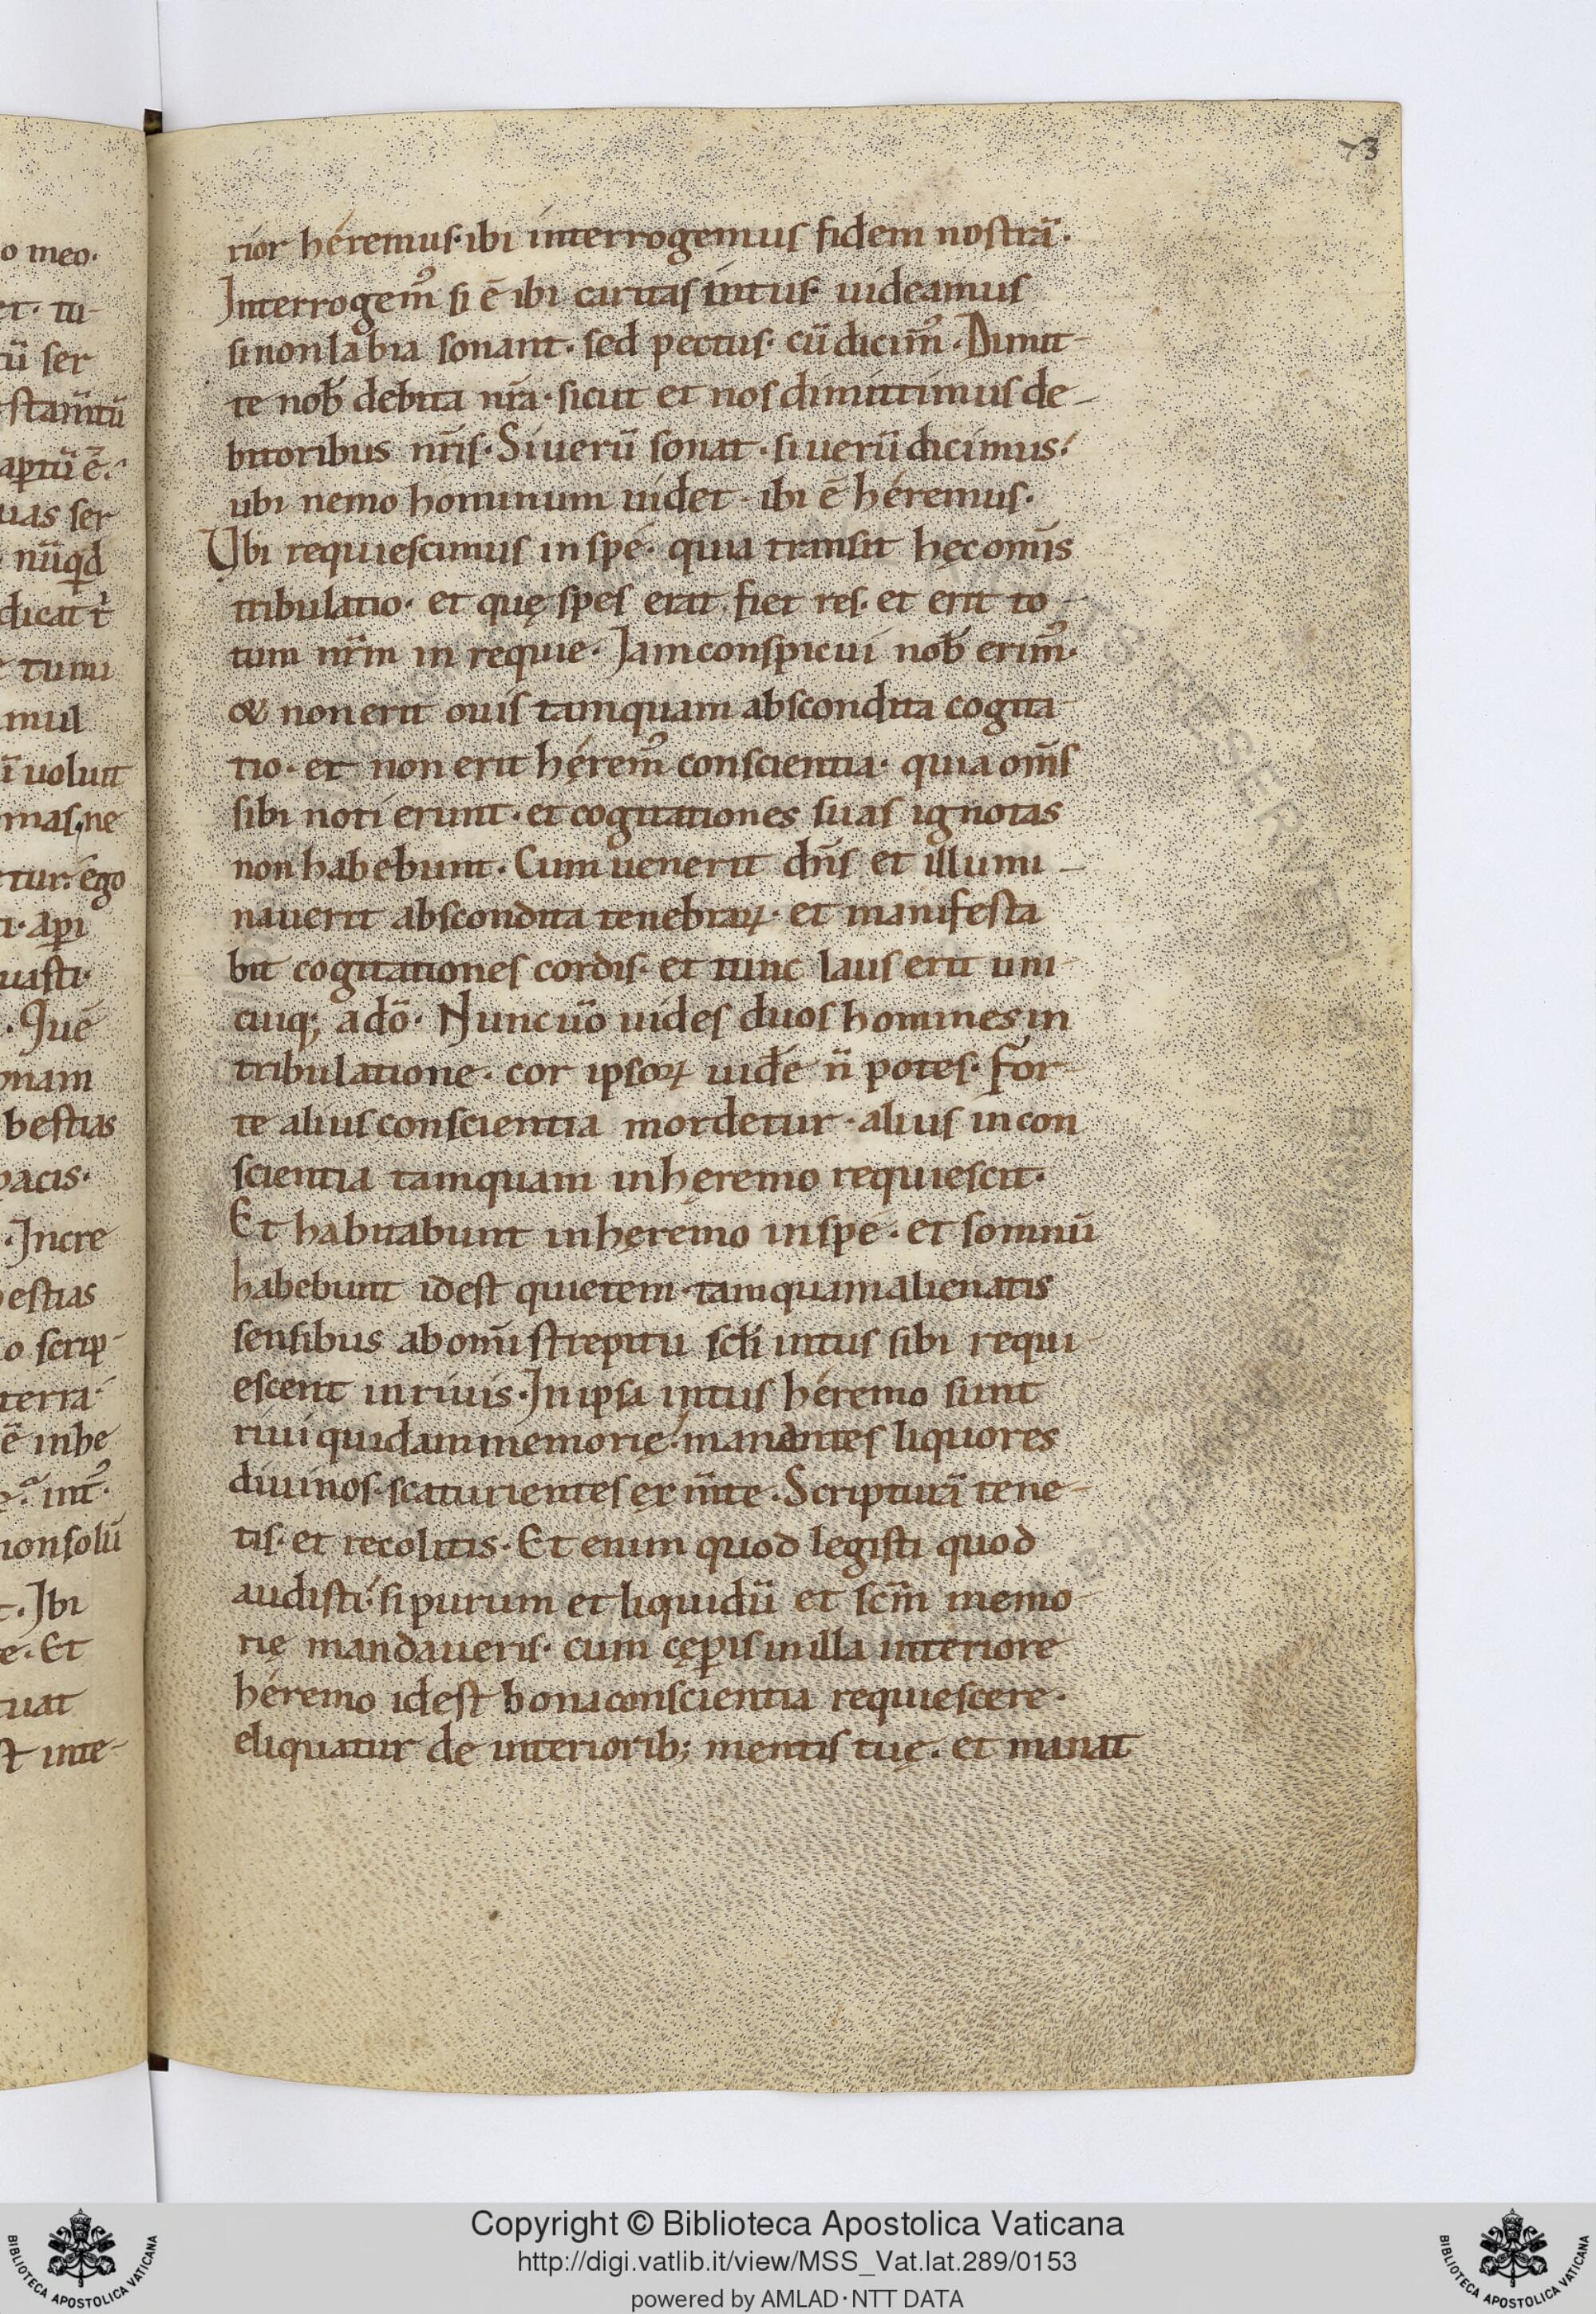 73
o meo·
et· tu-
tū ser
stam̄tū
aptū ē·
uas ser
nūqd
dicat
tumu
mul
uoluit
mas· ne
tur· ego
ti· aperi
uasti·
· Que
onam
bestias
pacis·
· Incre
bestias
o scrip-
terra·
ē inhe
int᷒·
non solū
· Ibi
e· Et
tuat
st inte-
rior héremus· ibi interrogemus fidem nostrā·
Interrogem᷒ si ē ibi caritas intus· uideamus
si non labia sonant· sed pectus· cū dicim᷒· Dimit-
te nob̄ debita nr̄a· sicut et nos dimittimus de-
bitoribus nr̄is· Si uerū sonat· si uerū dicimus·
ubi nemo hominum uidet· ibi ē héremus·
Ubi requiescimus in spe· quia transit hęc om̄is
tribulatio· et quę spes erat fiet res· et erit to-
tum nr̄m in requie· Iam conspicui nob̄ erim᷒·
& non erit ouis tamquam abscondita cogita
tio· et non erit hęrem᷒ conscientia· quia om̄s
sibi noti erunt· et cogitationes suas ignotas
non habebunt· Cum uenerit dn̄s et illumi-
nauerit abscondita tenebraꝝ· et manifesta
bit cogitationes cordis· et tunc laus erit uni-
cuiq; a dō· Nunc uō uides duos homines in
tribulatione· cor ipsoꝝ uidē n̄ potes· For-
te alius conscientia mordetur· alius in con
scientia tamquam in hęremo requiescit·
Et habitabunt in hęremo in spe· et somnū
habebunt id est quietem· tamquam alienatis
sensibus ab om̄i strepitu scl̄i intus sibi requi-
escent in riuis· In ipsa intus héremo sunt
riui quidam memorię· manantes liquores
diuinos· scaturientes ex m̄te· Scripturā tene-
tis· et recolitis· Et enim quod legisti quod
audisti· si purum et liquidū et scm̄ memo-
rię mandaueris· cum cęꝑis in illa interiore
héremo id est bona conscientia requiescere·
eliquatur de interiorib; mentis tuę· et manat
Copyright © Biblioteca Apostolica Vaticana
http://digi.vatlib.it/view/MSS_Vat.lat.289/0153
powered by AMLAD·NTT DATA
BIBLIOTECA APOSTOLICA VATICANA
BIBLIOTECA APOSTOLICA VATICANA